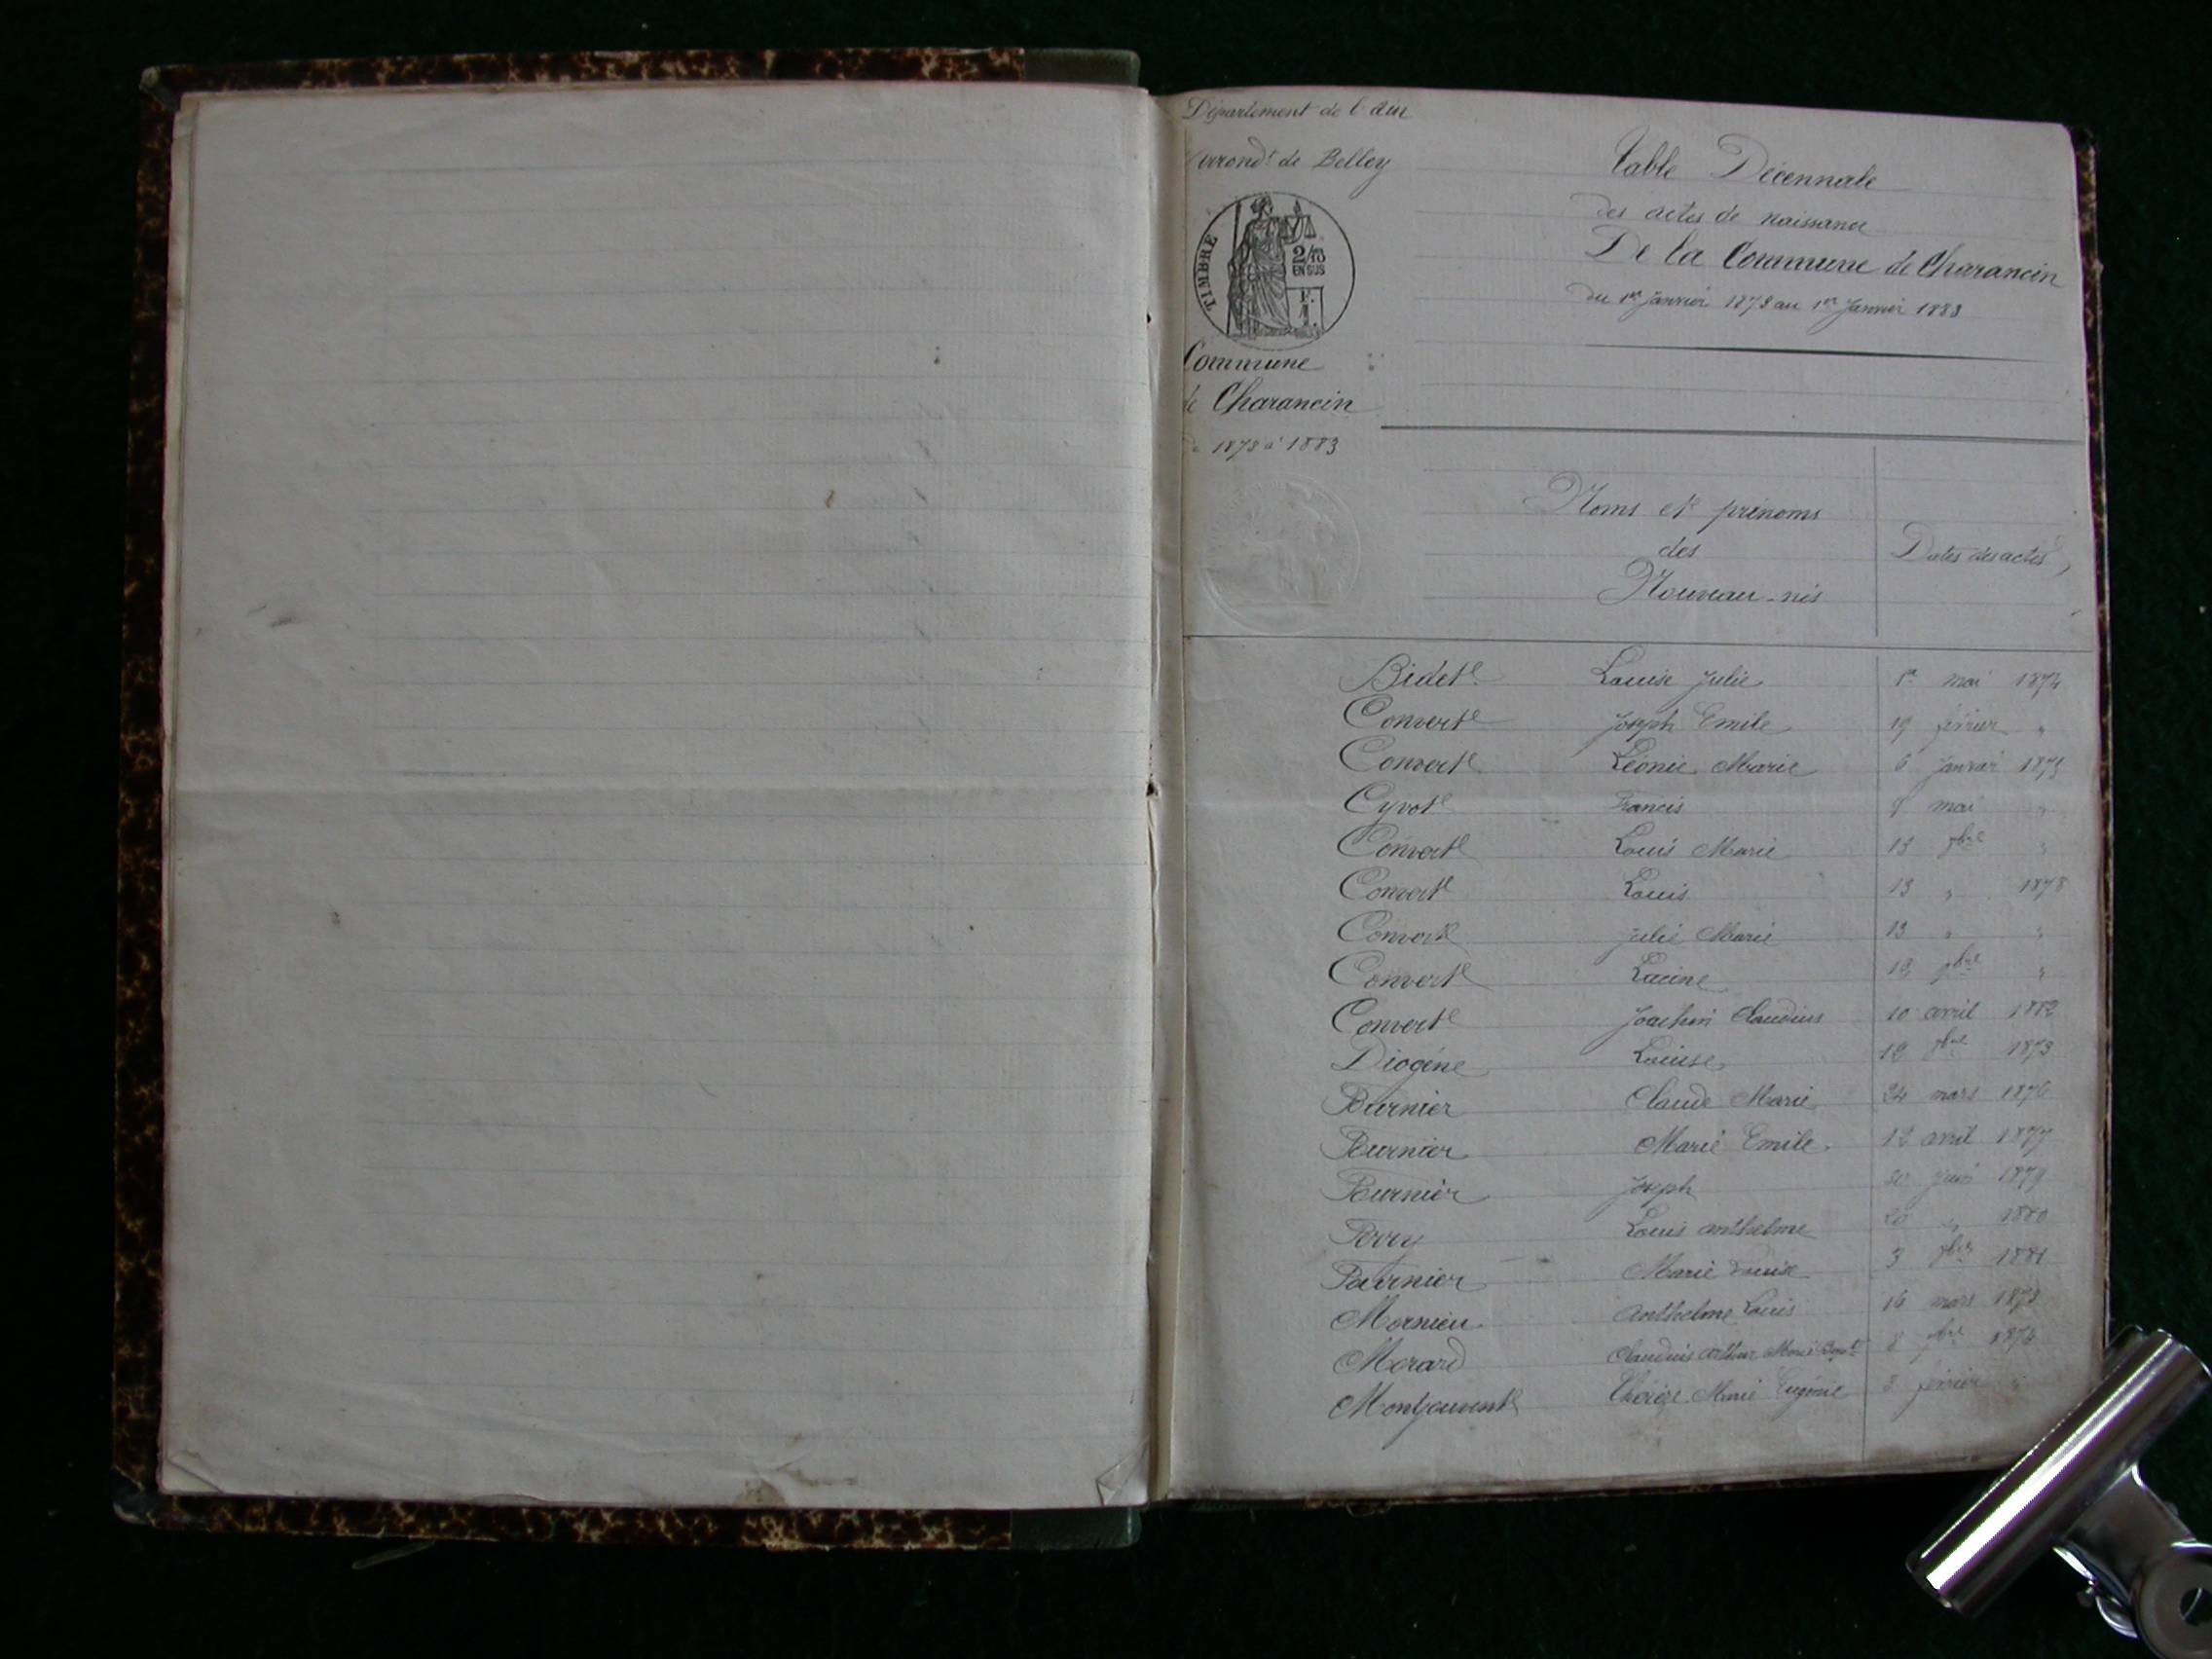 Département de l'ain
Arrond.t de Belley
TIMBRE
2/10
EN SUS
F.
1.
Commune
de Charancin
1873 à 1883
Table Décennale
des actes de naissance
De la Commune de Charancin
du 1er Janvier 1873 au 1er Janvier 1883
Noms et prénoms
des
Nouveau-nés
Dates des actes
Bidet Louise Julie 1er mai 1874
Convert Joseph Emile 19 février "
Convert Léonie Marie 6 Janvier 1875
Cyvot Francis 8 mai "
Convert Louis Marie 13 "
Convert Louis 13 " 1878
Convert Julie Marie 13 " "
Convert "
Convert Joachim Claudius 10 avril 1882
Diogéne Louise 1873
Burnier Claude Marie 24 mars 1876
Burnier Marie Emile 12 avril 1877
Burnier Joseph 30 juin 1879
Perry Louis anthelme 20 " 1880
Burnier Marie Louise 3 1881
Mornieu Anthelme Louis 16 mars 1873
Morard Claudius arthur Marie 8 1874
Montjouvent Thérèse Marie Eugénie 3 février "